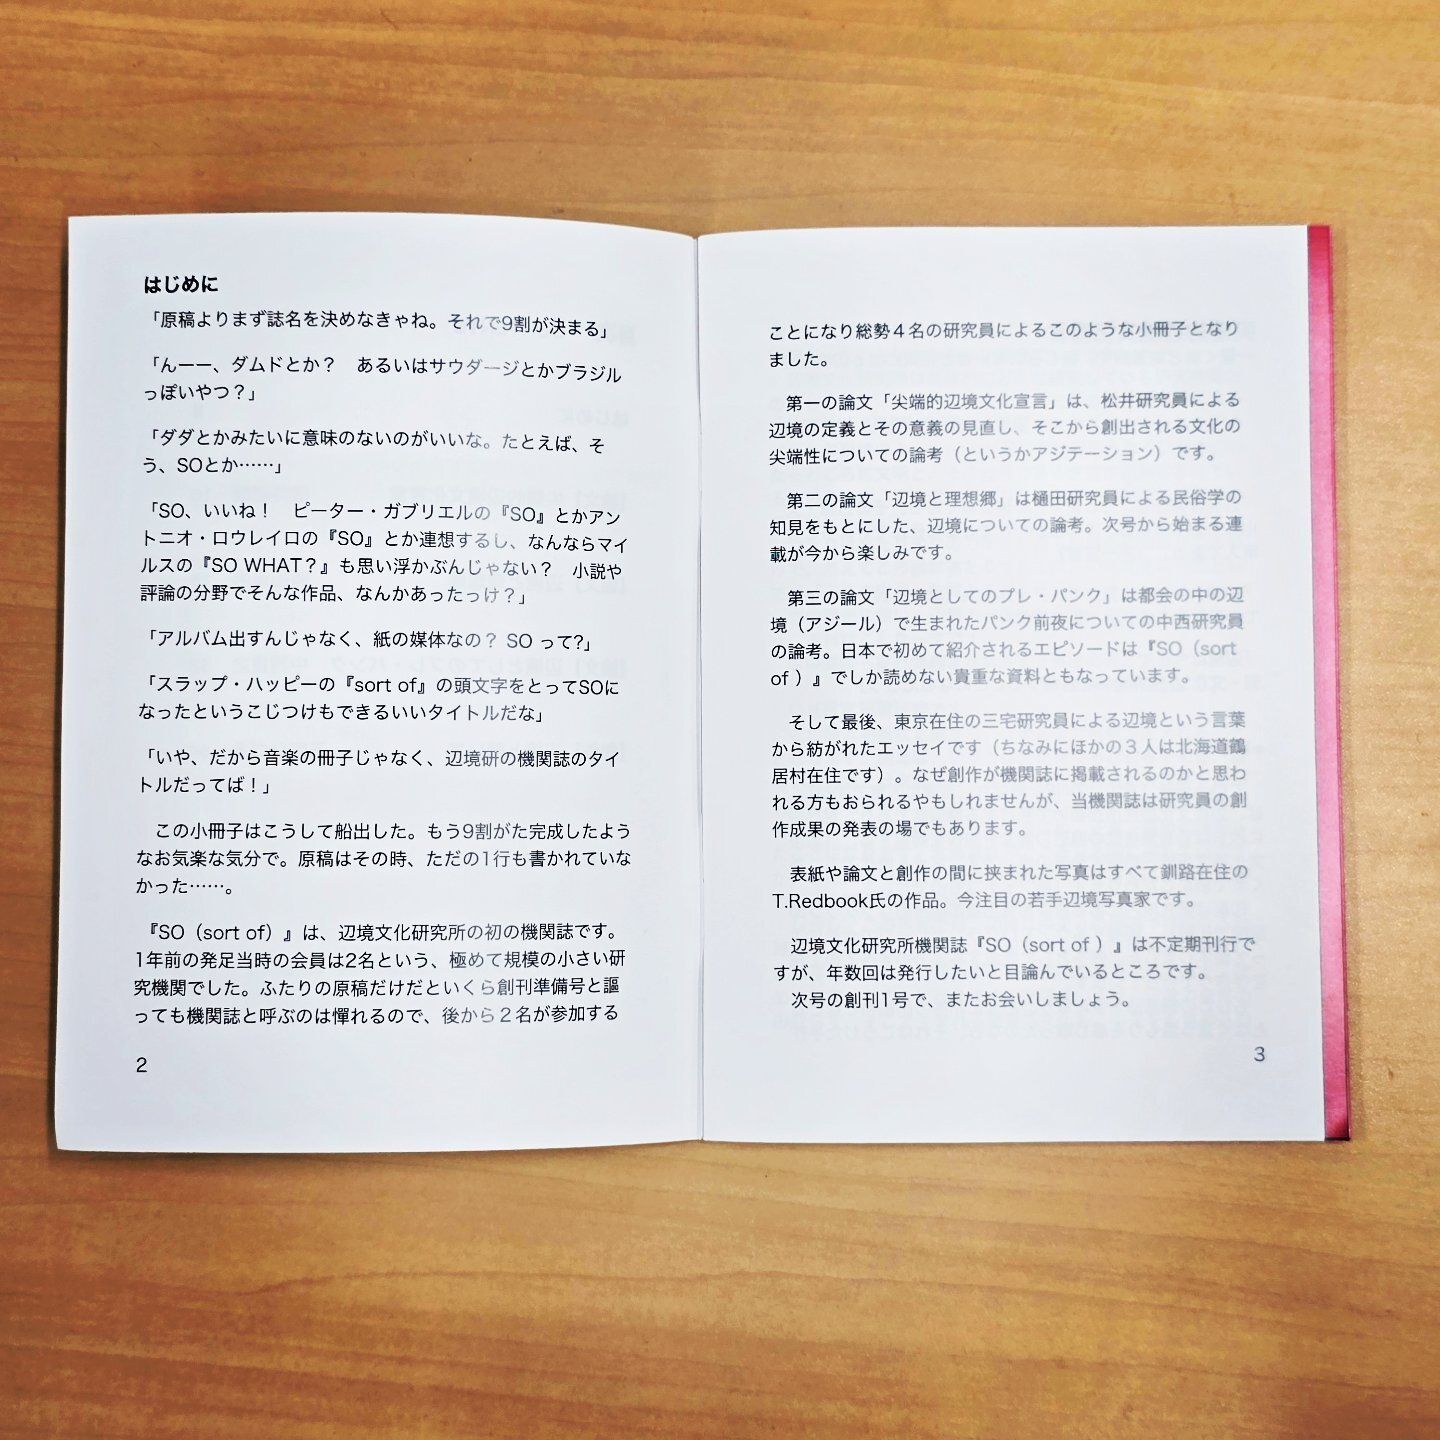 はじめに
「原稿よりまず誌名を決めなきゃね。それで9割が決まる」
「んーー、ダムドとか？　あるいはサウダージとかブラジル
っぽいやつ？」
「ダダとかみたいに意味のないのがいいな。たとえば、そ
う、SOとか……」
「SO、いいね！　ピーター・ガブリエルの『SO』とかアン
トニオ・ロウレイロの『SO』とか連想するし、なんならマイ
ルスの『SO WHAT？』も思い浮かぶんじゃない？　小説や
評論の分野でそんな作品、なんかあったっけ？」
「アルバム出すんじゃなく、紙の媒体なの？ SO って?」
「スラップ・ハッピーの『sort of』の頭文字をとってSOに
なったというこじつけもできるいいタイトルだな」
「いや、だから音楽の冊子じゃなく、辺境研の機関誌のタイ
トルだってば！」
　この小冊子はこうして船出した。もう9割がた完成したよう
なお気楽な気分で。原稿はその時、ただの1行も書かれていな
かった……。
『SO（sort of）』は、辺境文化研究所の初の機関誌です。
1年前の発足当時の会員は2名という、極めて規模の小さい研
究機関でした。ふたりの原稿だけだといくら創刊準備号と謳
っても機関誌と呼ぶのは憚れるので、後から２名が参加する
2
ことになり総勢４名の研究員によるこのような小冊子となり
ました。
　第一の論文「尖端的辺境文化宣言」は、松井研究員による
辺境の定義とその意義の見直し、そこから創出される文化の
尖端性についての論考（というかアジテーション）です。
　第二の論文「辺境と理想郷」は樋田研究員による民俗学の
知見をもとにした、辺境についての論考。次号から始まる連
載が今から楽しみです。
　第三の論文「辺境としてのプレ・パンク」は都会の中の辺
境（アジール）で生まれたパンク前夜についての中西研究員
の論考。日本で初めて紹介されるエピソードは『SO（sort
of ）』でしか読めない貴重な資料ともなっています。
　そして最後、東京在住の三宅研究員による辺境という言葉
から紡がれたエッセイです（ちなみにほかの３人は北海道鶴
居村在住です）。なぜ創作が機関誌に掲載されるのかと思わ
れる方もおられるやもしれませんが、当機関誌は研究員の創
作成果の発表の場でもあります。
　表紙や論文と創作の間に挟まれた写真はすべて釧路在住の
T.Redbook氏の作品。今注目の若手辺境写真家です。
　辺境文化研究所機関誌『SO（sort of ）』は不定期刊行で
すが、年数回は発行したいと目論んでいるところです。
　次号の創刊1号で、またお会いしましょう。
3